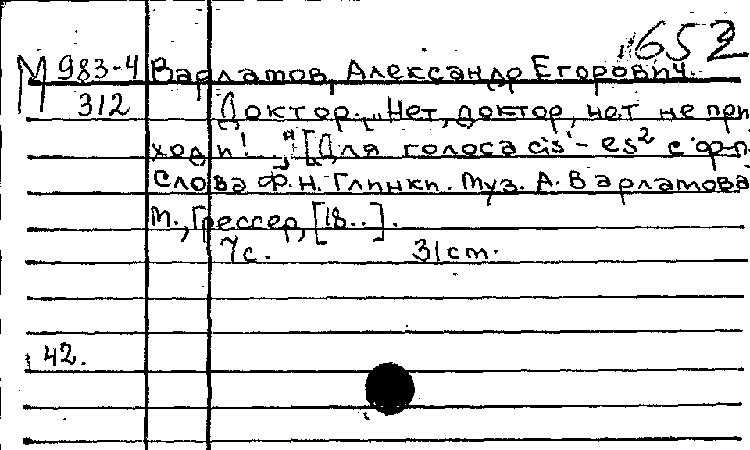 652
М 983-4 Варламов, Александр Егорович.
312 Доктор. „Нет, доктор, нет не при
ходи! ..." [Для голоса cis¹ - es² с ф-п.
Слова Ф.Н. Глинки. Муз. А. Варламова
М., Грессер, [18..].
7с. 31 см.
42.